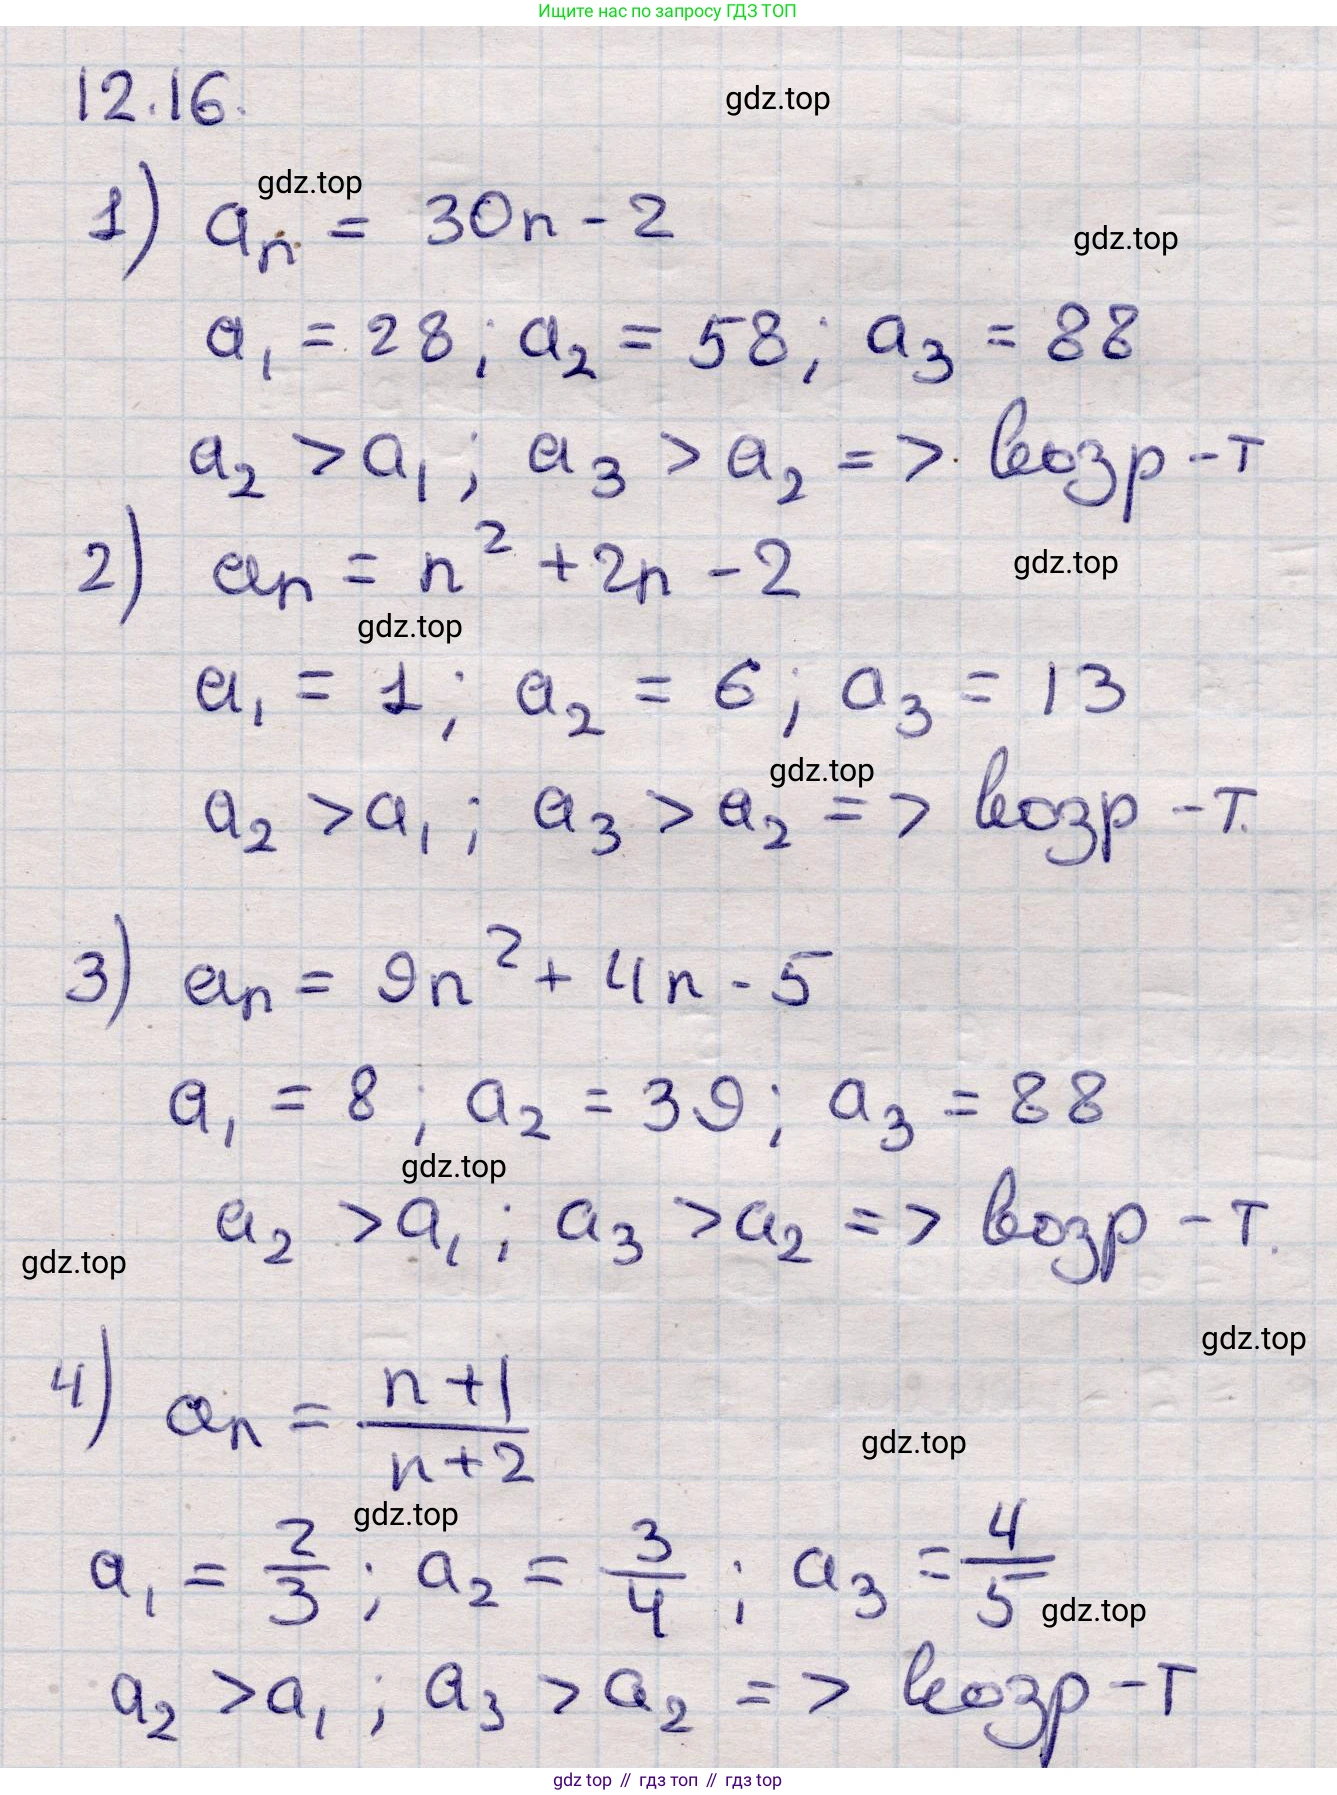 Ищите нас по запросу ГДЗ ТОП
12.16.
gdz.top
gdz.top
1) aₙ = 30n - 2
gdz.top
a₁ = 28; a₂ = 58; a₃ = 88
a₂ > a₁; a₃ > a₂ => возр-т
2) aₙ = n² + 2n - 2
gdz.top
gdz.top
a₁ = 1; a₂ = 6; a₃ = 13
gdz.top
a₂ > a₁; a₃ > a₂ => возр-т.
3) aₙ = 9n² + 4n - 5
a₁ = 8; a₂ = 39; a₃ = 88
gdz.top
a₂ > a₁; a₃ > a₂ => возр-т.
gdz.top
gdz.top
4) aₙ = (n+1)/(n+2)
gdz.top
gdz.top
a₁ = 2/3; a₂ = 3/4; a₃ = 4/5
gdz.top
a₂ > a₁; a₃ > a₂ => возр-т
gdz top // гдз топ // гдз top